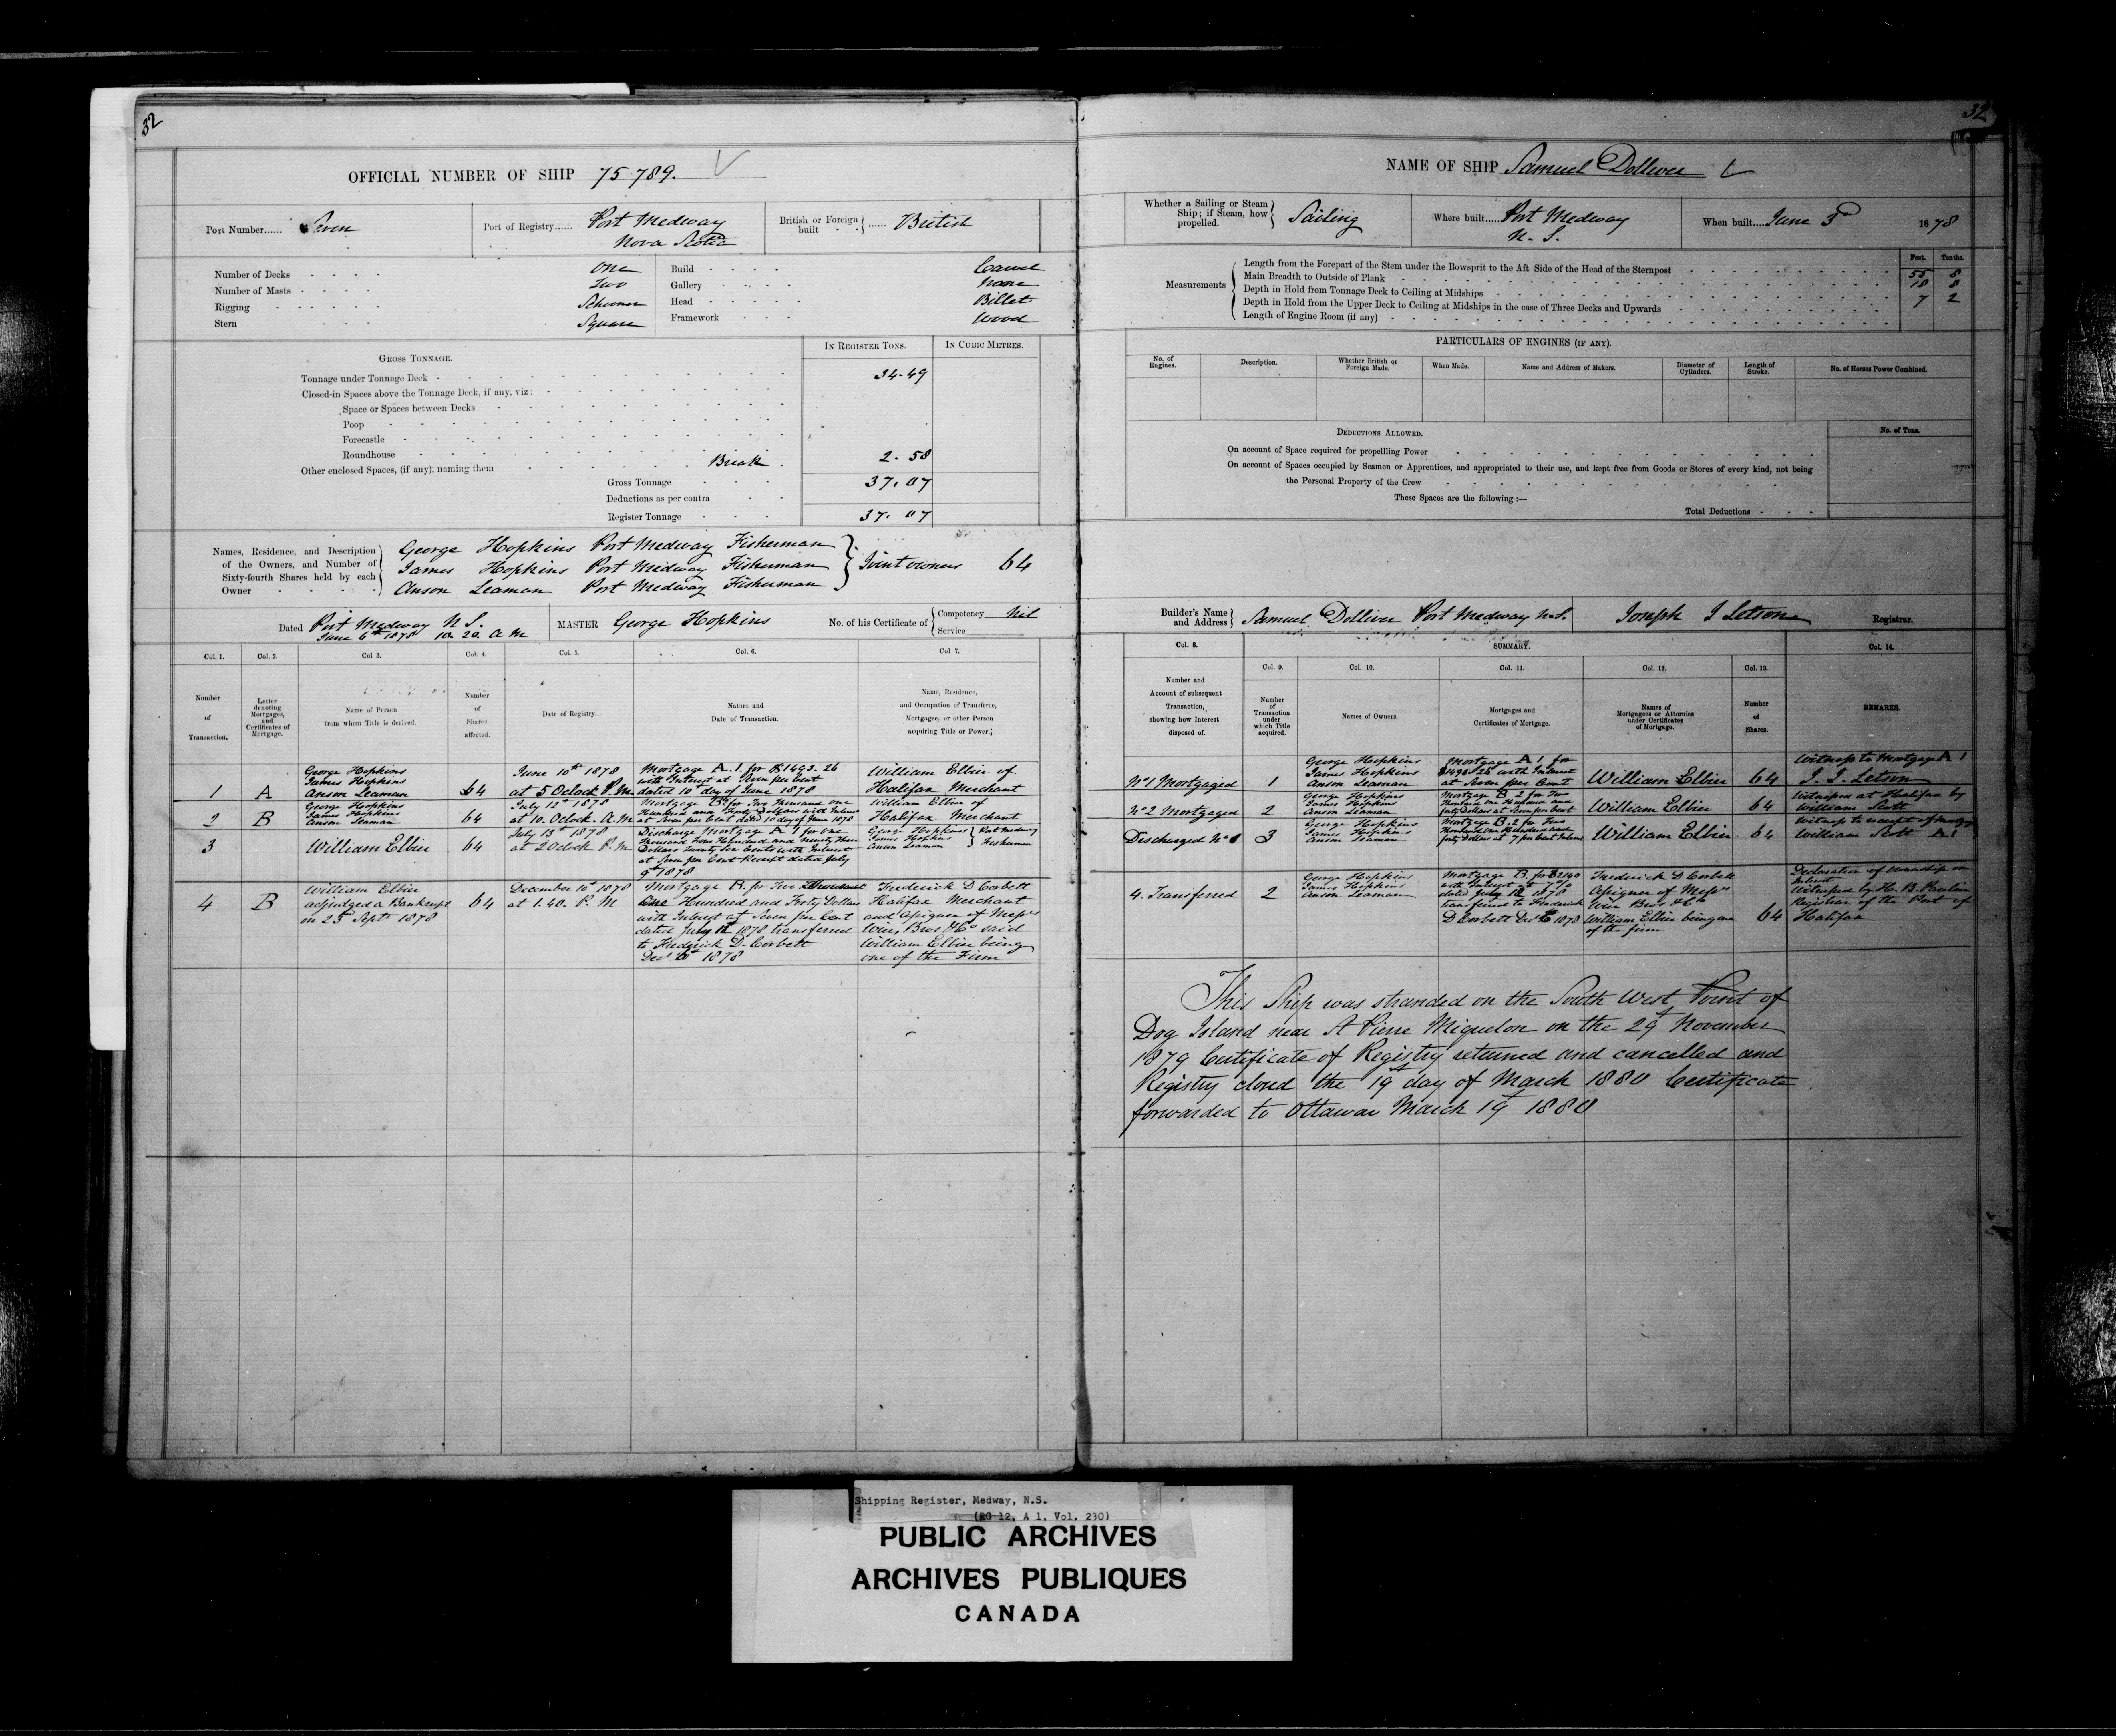 32
OFFICIAL NUMBER OF SHIP 75789.
Port Number...... Seven
Port of Registry...... Port Medway
Nova Scotia
British or Foreign built ...... British
Number of Decks One
Number of Masts Two
Rigging Schooner
Stern Square
Build Carvel
Gallery None
Head Billet
Framework Wood
IN REGISTER TONS. IN CUBIC METRES.
GROSS TONNAGE.
Tonnage under Tonnage Deck 34.49
Closed-in Spaces above the Tonnage Deck, if any, viz:
Space or Spaces between Decks
Poop
Forecastle
Roundhouse
Other enclosed Spaces, (if any); naming them Break 2.58
Gross Tonnage 37.07
Deductions as per contra
Register Tonnage 37.07
Names, Residence, and Description
of the Owners, and Number of
Sixty-fourth Shares held by each
Owner
George Hopkins Port Medway Fisherman
James Hopkins Port Medway Fisherman
Anson Leaman Port Medway Fisherman
Joint owners 64
Dated Port Medway N S.
June 6th 1878 10.20. A M
MASTER George Hopkins
No. of his Certificate of Competency Nil
Service
Col. 1. Col. 2. Col 3. Col. 4. Col. 5. Col. 6. Col 7.
Number of Transaction.
Letter denoting Mortgages, and Certificates of Mortgage.
Name of Person from whom Title is derived.
Number of Shares affected.
Date of Registry.
Nature and Date of Transaction.
Name, Residence, and Occupation of Transferee, Mortgagee, or other Person acquiring Title or Power.
1 A
George Hopkins
James Hopkins
Anson Leaman
64
June 10th 1878
at 5 Oclock P. M
Mortgage A. 1. for $1493.26
with Interest at Seven per Cent
dated 10th day of June 1878
William Elbier of
Halifax Merchant
2 B
George Hopkins
James Hopkins
Anson Leaman
64
July 12th 1878
at 10. Oclock. A. M
Mortgage B 2 for Two Thousand one
Hundred and Forty Dollars with Interest
at Seven per Cent dated 10 day of June 1878
William Elbier of
Halifax Merchant
3
William Elbier
64
July 13th 1878
at 2 Oclock P. M
Discharge Mortgage A 1 for One
Thousand Four Hundred and Ninety Three
Dollars Twenty Six Cents with Interest
at Seven per Cent Receipt dated July
9th 1878
George Hopkins
James Hopkins
Anson Leaman
Port Medway
Fishermen
4 B
William Elbier
adjudged a Bankrupt
on 2.d Sept. 1878
64
December 10th 1878
at 1.40. P. M
Mortgage B. for Two Thousand
One Hundred and Forty Dollars
with Interest at Seven per Cent
dated July 1878 transferred
to Fredrick D. Corbett
Decr 1878
Frederick D Corbett
Halifax Merchant
and Assignee of Messrs
Wier, Bros & Co said
William Elbier being
one of the Firm
32
NAME OF SHIP Samuel Dolliver
Whether a Sailing or Steam
Ship; if Steam, how
propelled.
Sailing
Where built...... Port Medway
N. S.
When built.... June 3d 1878
Measurements
Feet. Tenths.
Length from the Forepart of the Stem under the Bowsprit to the Aft Side of the Head of the Sternpost 55 8
Main Breadth to Outside of Plank 18 8
Depth in Hold from Tonnage Deck to Ceiling at Midships 7 2
Depth in Hold from the Upper Deck to Ceiling at Midships in the case of Three Decks and Upwards
Length of Engine Room (if any)
PARTICULARS OF ENGINES (IF ANY).
No. of Engines.
Description.
Whether British or Foreign Made.
When Made.
Name and Address of Makers.
Diameter of Cylinders.
Length of Stroke.
No. of Horses Power Combined.
DEDUCTIONS ALLOWED.
No. of Tons.
On account of Space required for propellling Power
On account of Spaces occupied by Seamen or Apprentices, and appropriated to their use, and kept free from Goods or Stores of every kind, not being
the Personal Property of the Crew
These Spaces are the following:—
Total Deductions
Builder's Name
and Address
Samuel Dolliver Port Medway N.S.
Joseph J Letson
Registrar.
Col. 8. SUMMARY. Col. 14.
Col. 9. Col. 10. Col. 11. Col. 12. Col. 13.
Number and Account of subsequent Transaction, showing how Interest disposed of.
Number of Transaction under which Title acquired.
Names of Owners.
Mortgages and Certificates of Mortgage.
Names of Mortgagees or Attornies under Certificates of Mortgage.
Number of Shares.
REMARKS.
No 1 Mortgaged
1
George Hopkins
James Hopkins
Anson Leaman
Mortgage A 1 for
$1493.26 with Interest
at Seven per Cent
William Elbier
64
Witness to Mortgage A 1
J. J. Letson
No 2 Mortgaged
2
George Hopkins
James Hopkins
Anson Leaman
Mortgage B 2 for Two
Thousand One Hundred and
forty Dollars at Seven per Cent
William Elbier
64
Witnesses at Halifax by
William Scott
Discharged No 1
3
George Hopkins
James Hopkins
Anson Leaman
Mortgage B. 2 for Two
Thousand One Hundred and
forty Dollars at 7 per Cent Interest
William Elbier
64
Witness to receipt of Mortgage
William Scott A1
4. Transferred
2
George Hopkins
James Hopkins
Anson Leaman
Mortgage B. for $2140
with Interest at 7 %
dated July 1878
transferred to Frederick
D Corbett Decr 1878
Frederick D Corbett
Assignee of Messrs
Wier Bros & Co
William Elbier being one
of the firm
64
Declaration of Ownership on
Interest
Witnessed by H. B. Paulin
Registrar of the Port of
Halifax
This Ship was stranded on the South West Point of
Dog Island near St Pierre Miquelon on the 29th November
1879 Certificate of Registry returned and cancelled and
Registry closed the 19th day of March 1880 Certificate
forwarded to Ottawa March 19th 1880
Shipping Register, Medway, N.S.
(RG 12, A 1, Vol. 230)
PUBLIC ARCHIVES
ARCHIVES PUBLIQUES
CANADA